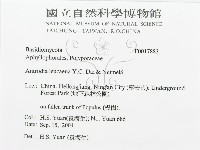 國立自然科學博物館
NATIONAL MUSEUM OF NATURAL SCIENCE
TAICHUNG, TAIWAN, R.O.CHINA
Basidiomycota F0017883
Aphyllophorales, Polyporaceae
Antrodia leucaena Y.C. Dai & Niemelä
Loc: China, Heilongjiang, Ningan City Underground
Forest Park
on fallen trunk of Populus
Col: H.S. Yuan No. Yuan
Date: Sep. 15, 2004
Det: H.S. Yuan